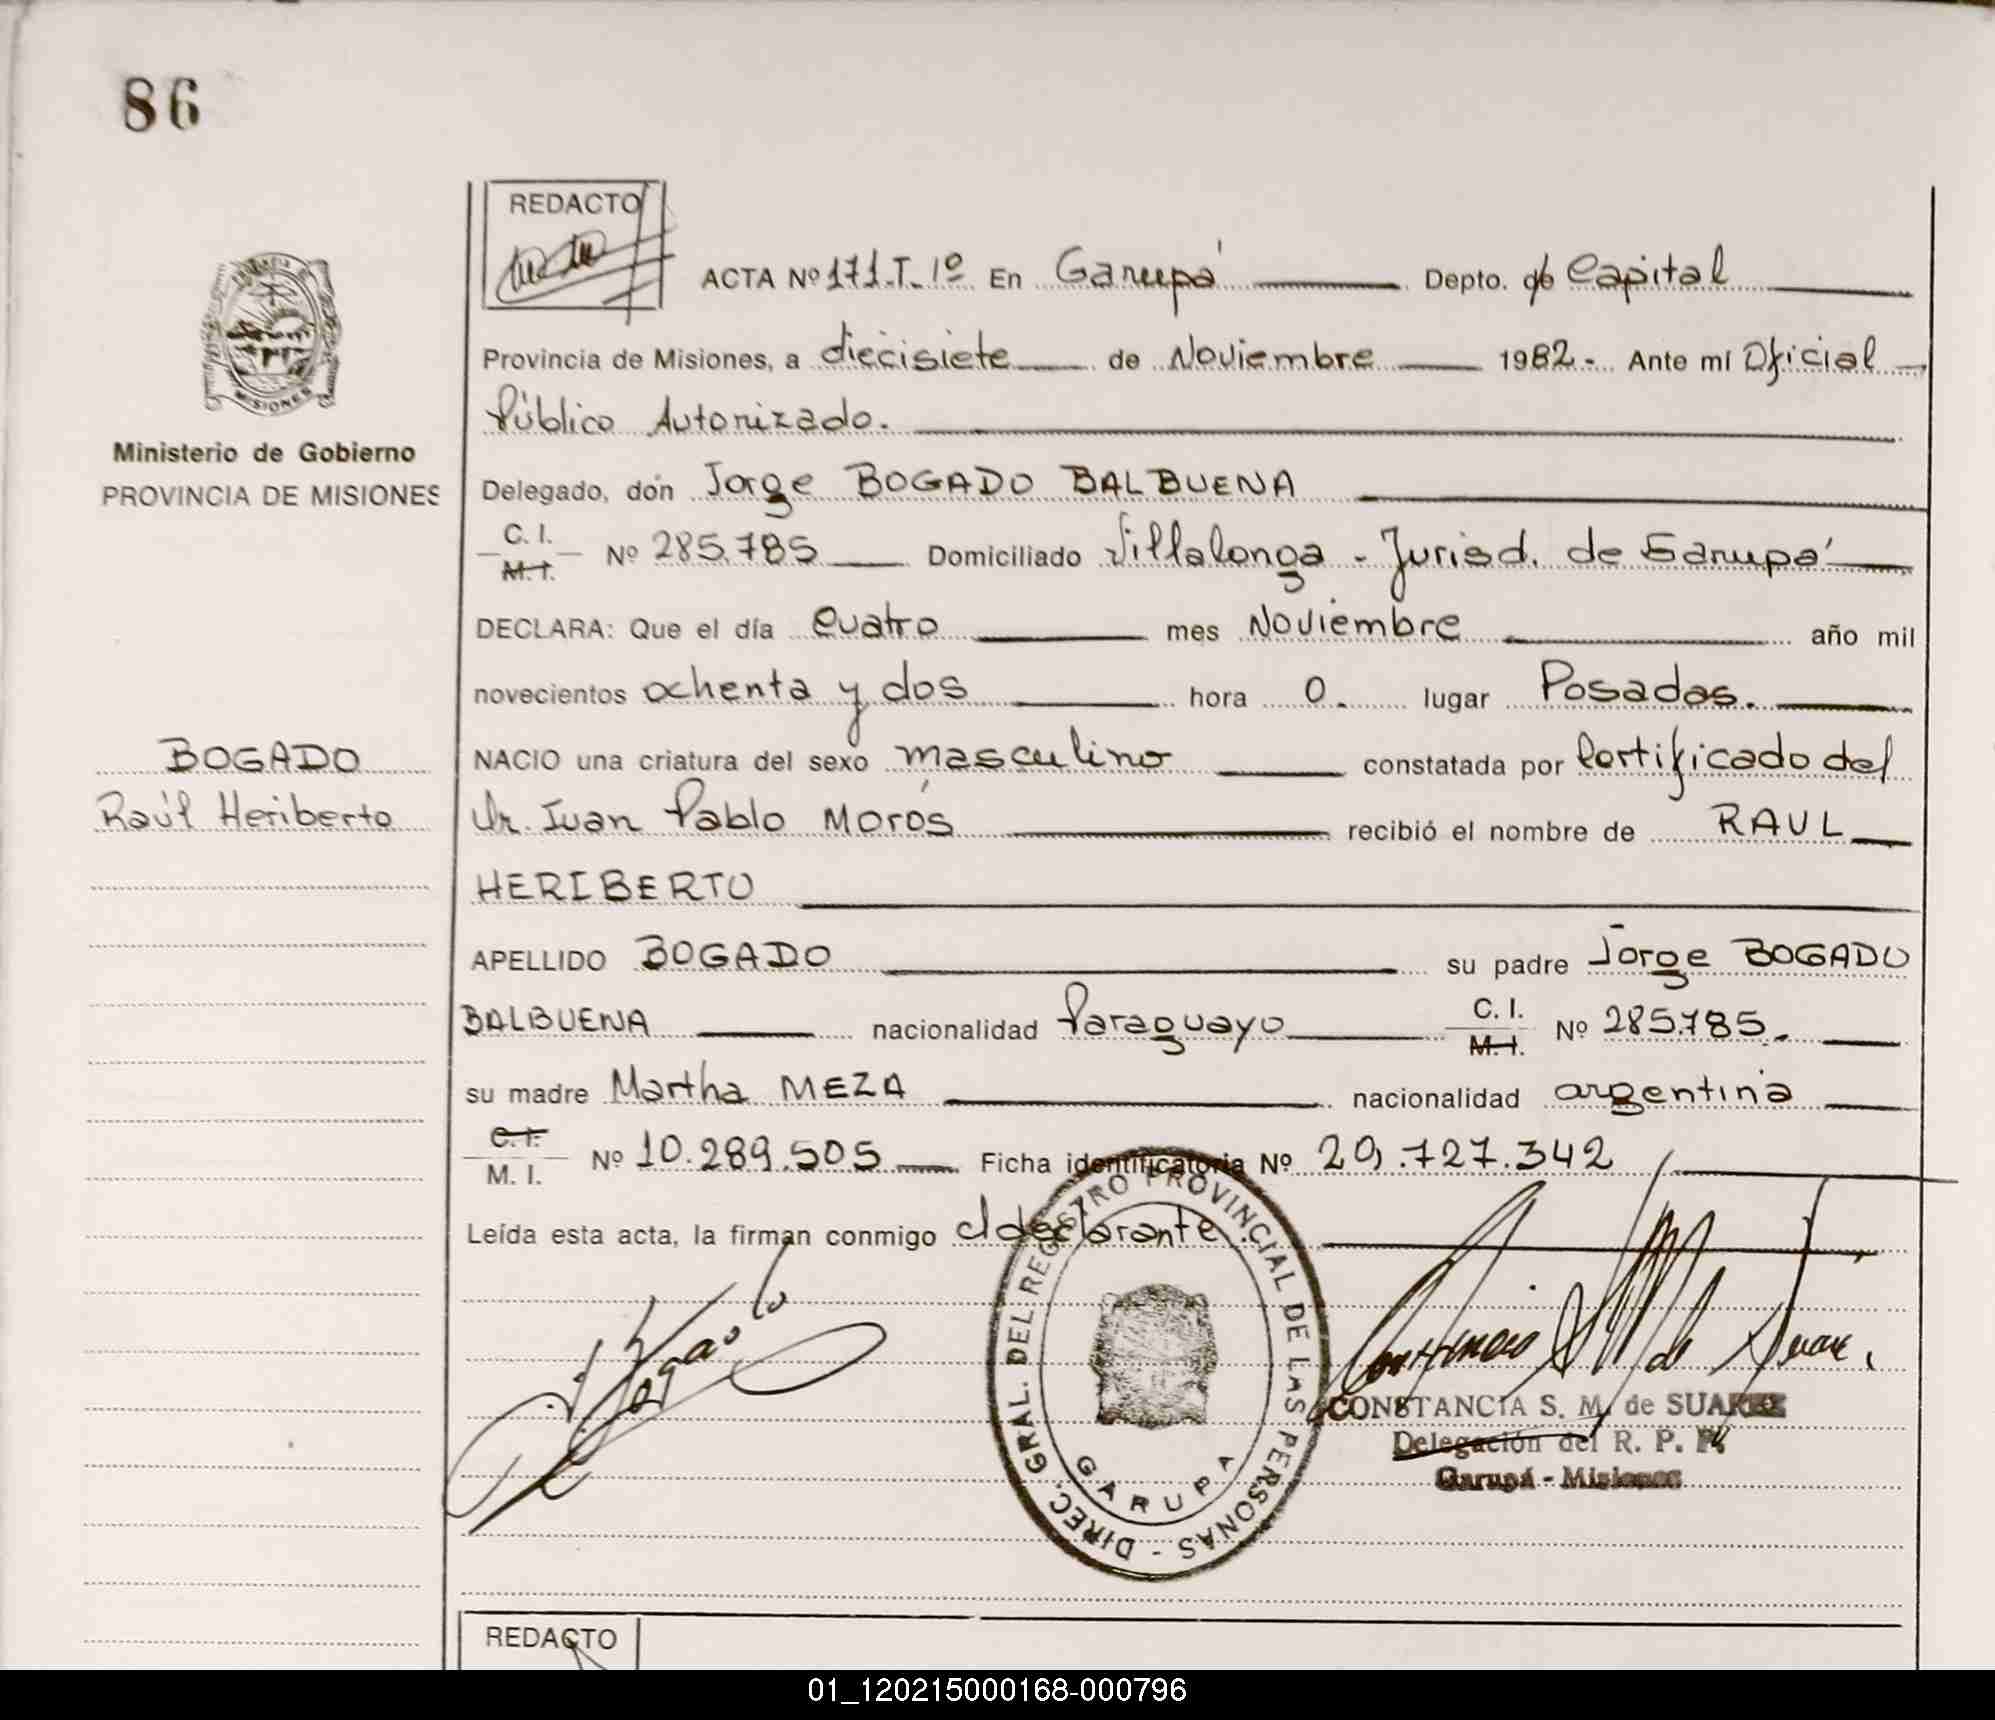 86
REDACTO
ACTA Nº 171.T.1º En Garupá Depto. de Capital
PROVINCIA DE MISIONES
Provincia de Misiones, a diecisiete de Noviembre 1982.- Ante mí Oficial
Público Autorizado.
Ministerio de Gobierno
PROVINCIA DE MISIONES
Delegado, don Jorge BOGADO BALBUENA
C. I.
M. I. Nº 285.785 Domiciliado Villalonga - Jurisd. de Garupá
DECLARA: Que el día Cuatro mes Noviembre año mil
novecientos ochenta y dos hora 0. lugar Posadas.
BOGADO
NACIO una criatura del sexo masculino constatada por Certificado del
Raúl Heriberto
Dr. Juan Pablo Morós recibió el nombre de RAUL
HERIBERTO
APELLIDO BOGADO su padre Jorge BOGADO
BALBUENA nacionalidad Paraguayo C. I.
M. I. Nº 285.785.-
su madre Martha MEZA nacionalidad argentina
C. I.
M. I. Nº 10.289.505 Ficha identificatoria Nº 29.727.342
Leída esta acta, la firman conmigo el declarante.
Bogado
DIREC. GRAL. DEL REGISTRO PROVINCIAL DE LAS PERSONAS - GARUPA
CONSTANCIA S. M. de SUAREZ
Delegación del R. P. P.
Garupá - Misiones
REDACTO
01_120215000168-000796